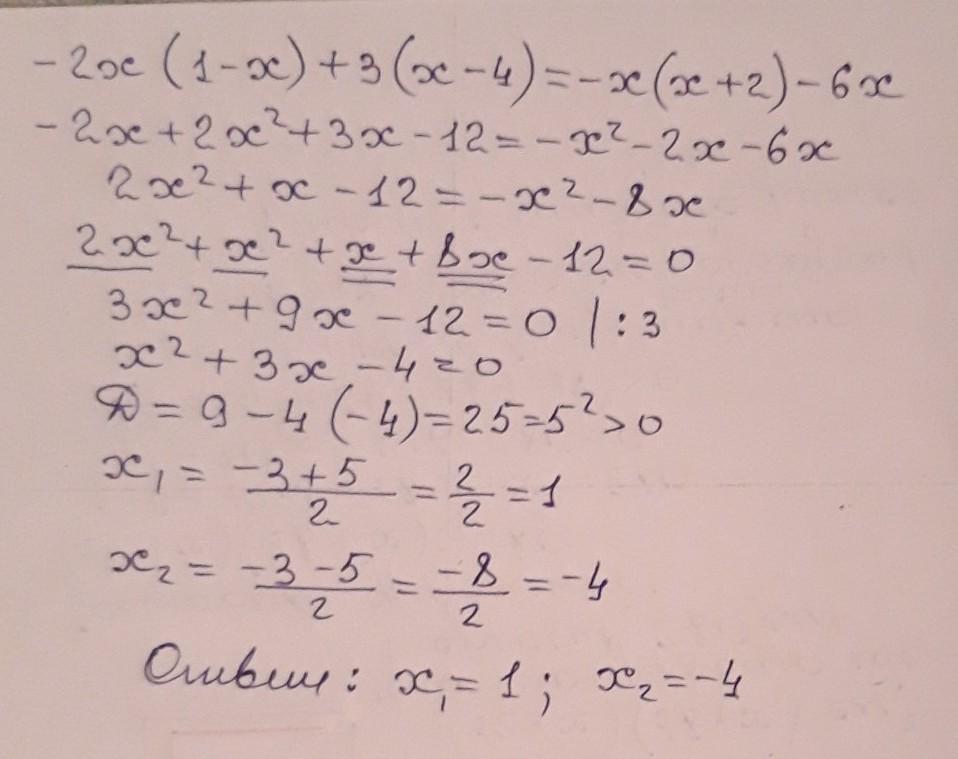 -2x(1-x)+3(x-4)=-x(x+2)-6x
-2x+2x²+3x-12=-x²-2x-6x
2x²+x-12=-x²-8x
2x²+x²+x+8x-12=0
3x²+9x-12=0 |:3
x²+3x-4=0
D=9-4(-4)=25=5²>0
x₁=(-3+5)/2=2/2=1
x₂=(-3-5)/2=-8/2=-4
Ответ: x₁=1; x₂=-4